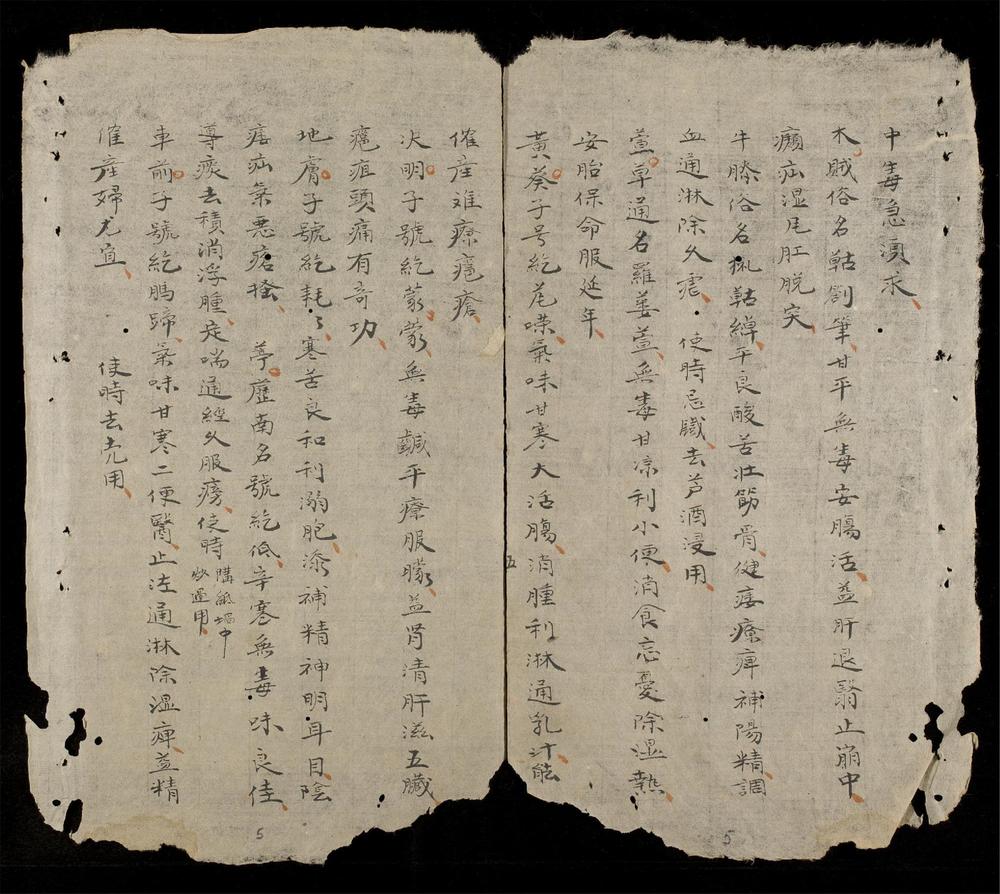 中毒急須求
木賊俗名𦼔劉筆甘平無毒安腸活益肝退翳止崩中
癩疝湿尾肛脱突
牛膝俗名𦼔繂平良酸苦壯筋骨健痿療痺補陽精調
血通淋除久瘧使時忌臟去芦酒浸用
萱草通名羅萎萱無毒甘凉利小便消食忘憂除湿熱
安胎保命服延年
黃葵子号紇花嘆氣味甘寒大活腸消腫利淋通乳汁能
五
催產难療瘡瘡
决明子號紇蒙蒙無毒鹹平療服朦益肾清肝滋五臟
瘡疽頭痛有奇功
地膚子號紇耗〻寒苦良和利溺胞添補精神明耳目陰
痿疝氣悪瘡搔葶藶南名號紇低辛寒無毒味良佳
導痰去積消浮腫定喘通經久服癆使時隔紙堝中炒過用
車前子號紇馬蹄氣味甘寒二便醫止泣通淋除湿痺益精
催產婦尤宜使時去壳用
5
5